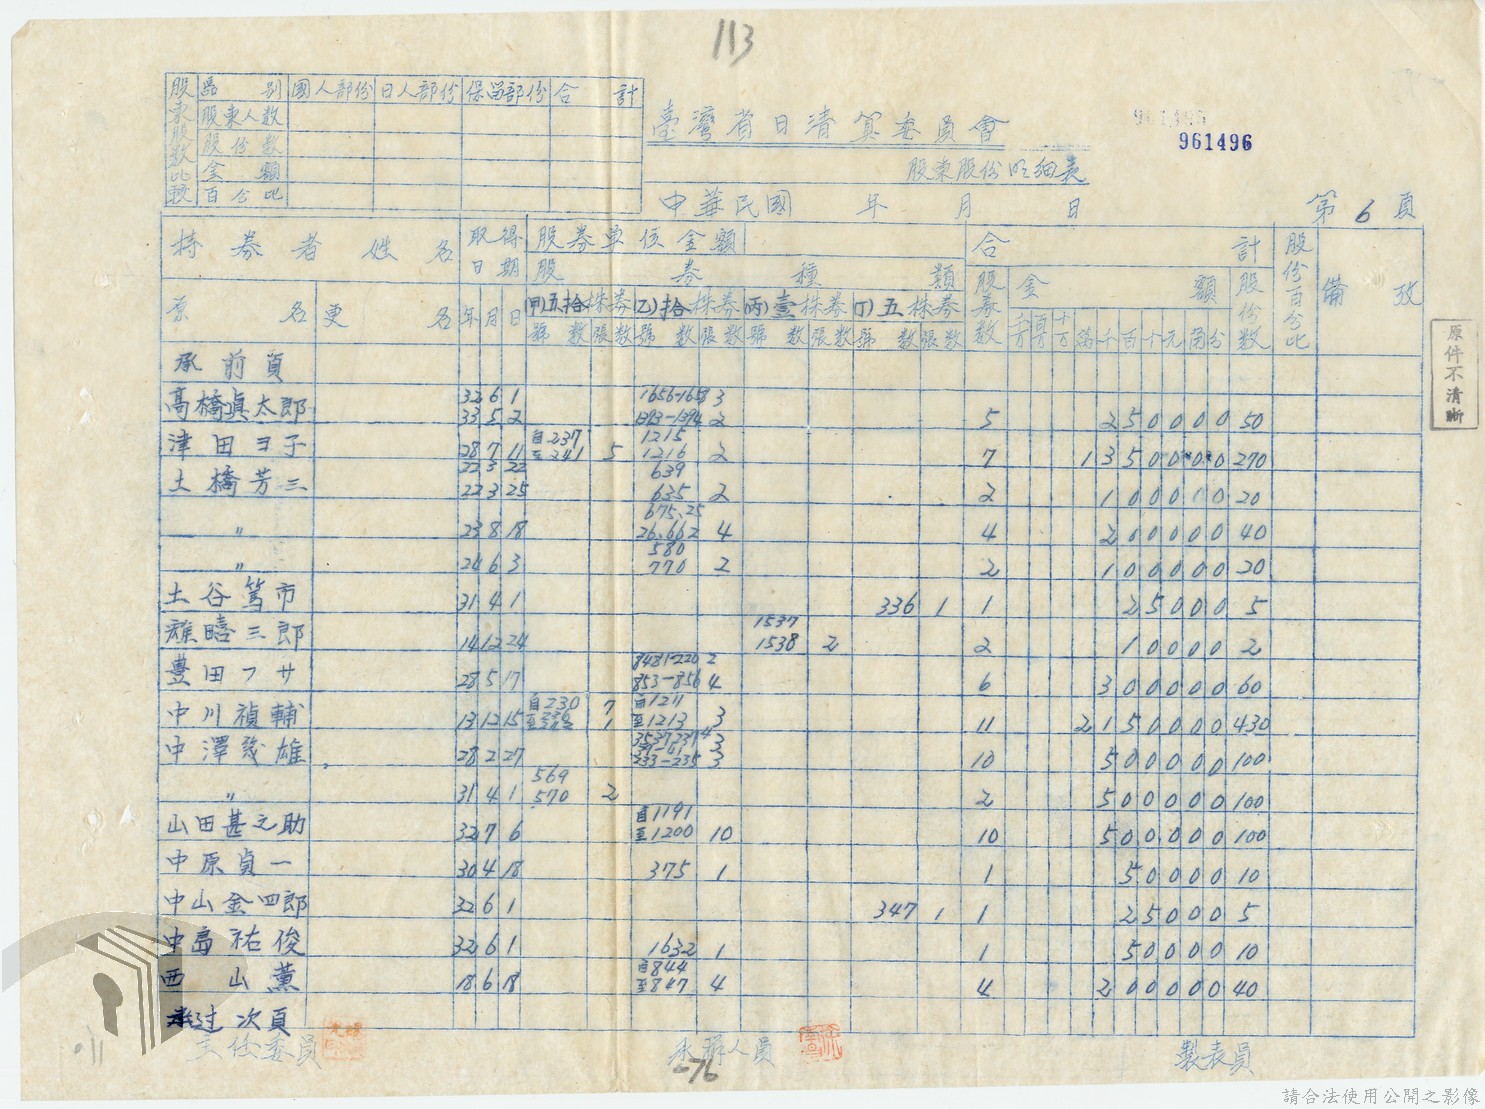 113
股東股數比較
區別 國人部份 日人部份 保留部份 合計
股東人數
股份數
金額
百分比
臺灣省日清算委員會
961496
股東股份明細表
中華民國 年 月 日
第 6 頁
持券者姓名 取得日期 股券單位金額 合計 股份百分比 備攷
股券種類 股券數 金額 股份數
原名 更名 年 月 日 (甲)五拾株券 (乙)拾株券 (丙)壹株券 (丁)五株券
號數 張數 號數 張數 號數 張數 號數 張數 千万 百万 十万 萬 千 百 十 元 角 分
承前頁
高橋眞太郎 32 6 1 1656-1658 3
33 5 2 1393-1394 2 5 250000 50
津田ヨ子 28 7 11 自237 至241 5 1215 1216 2 7 1350000 270
土橋芳三 22 3 22 639
22 3 25 635 2 2 100000 20
〃 23 8 18 675、25 26、662 4 4 200000 40
〃 24 6 3 580 770 2 2 100000 20
土谷篤市 31 4 1 336 1 1 25000 5
三郎 14 12 24 1537 1538 2 2 10000 2
豊田フサ 28 5 17 853-856 4 6 300000 60
中川禎輔 13 12 15 自230 7 1 自1211 至1213 3 11 2150000 430
中澤 雄 28 2 27 233-235 3 10 500000 100
〃 31 4 1 569 570 2 2 500000 100
山田甚之助 32 7 6 自1191 至1200 10 10 500000 100
中原貞一 30 4 18 375 1 1 50000 10
中山金四郎 32 6 1 347 1 1 25000 5
中島祐俊 32 6 1 1632 1 1 50000 10
西山薫 18 6 18 自844 至847 4 4 200000 40
过次頁
主任委員 承辦人員 製表員
76
原件不清晰
請合法使用公開之影像